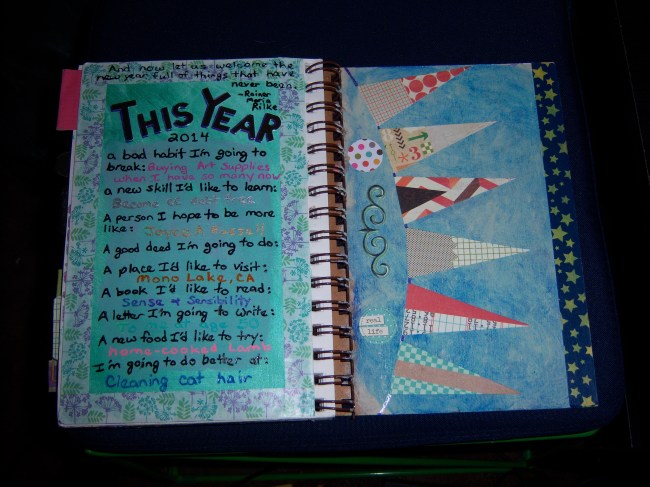 And now let us welcome the
new year full of things that have
never been.
-Rainer
Maria
Rilke
THIS YEAR
2014
a bad habit I'm going to
break: Buying Art Supplies
when I have so many now
a new skill I'd like to learn:
Become CC Debt Free
A person I hope to be more
like: Russell
A good deed I'm going to do:
A place I'd like to visit:
Mono Lake, CA
A book I'd like to read:
Sense & Sensibility
A letter I'm going to write:
A new food I'd like to try:
home-cooked Lamb
I'm going to do better at:
Cleaning cat hair
3
real
life